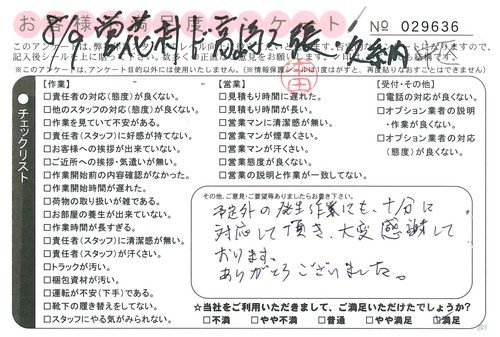 お客様満足度アンケート
№ 029636
8/9
※このアンケート、アンケート目的以外には使用いたしません。(※情報保護シールは1度はがすと、再度貼りなおすことはできません)
チェックリスト
【作業】
□責任者の対応(態度)が良くない。
□他のスタッフの対応(態度)が良くない。
□作業を見ていて不安がある。
□責任者(スタッフ)に好感が持てない。
□お客様への挨拶が出来ていない。
□ご近所への挨拶・気遣いが無い。
□作業開始前の内容確認がなかった。
□作業開始時間が遅れた。
□荷物の取り扱いが雑である。
□お部屋の養生が出来ていない。
□作業時間が長すぎる。
□責任者(スタッフ)に清潔感が無い。
□責任者(スタッフ)が汗くさい。
□トラックが汚い。
□梱包資材が汚い。
□運転が不安(下手)である。
□靴下の履き替えをしてない。
□スタッフにやる気がみられない。
【営業】
□見積もり時間に遅れた。
□見積もり時間が長い。
□営業マンに清潔感が無い。
□営業マンが煙草くさい。
□営業マンが汗くさい。
□営業態度が良くない。
□営業の説明と作業が一致してない。
【受付・その他】
□電話の対応が良くない。
□オプション業者の説明
・作業が良くない。
□オプション業者の対応
(態度)が良くない。
その他、ご意見・ご要望等ありましたらお書き下さい。
予定外の発生作業にも、十分に
対応して頂き、大変感謝して
おります。
ありがとうございました。
☆当社をご利用いただきまして、ご満足いただけたでしょうか?
□不満 □やや不満 □普通 □やや満足 □満足